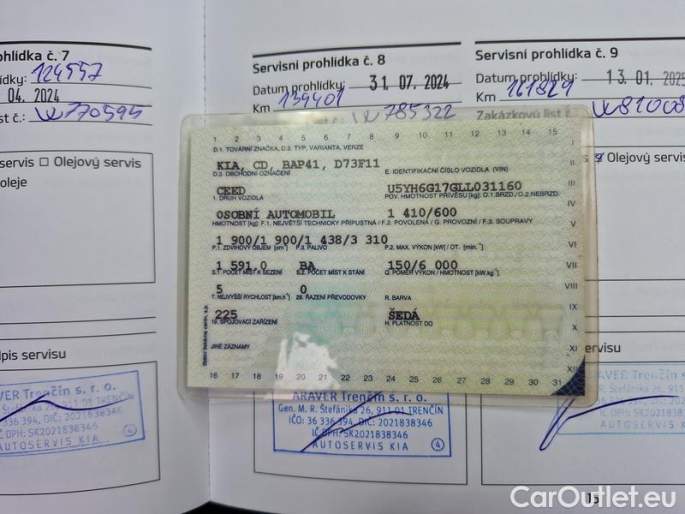 ohlídka č. 7
dky: 124557
04. 2024
st č.: W770595
servis □ Olejový servis
oleje
dpis servisu
ARAVER Trenčín s. r. o.
M. R. Štefánika 26, 911 01 TRENČÍN
36 336 394, DIČ: 2021838346
IČ DPH: SK2021838346
AUTOSERVIS KIA
Servisní prohlídka č. 8
Datum prohlídky: 31 07. 2024
Km 139401
W785322
Servisní prohlídka č. 9
Datum prohlídky: 13. 01. 2025
Km 161829
Zakázkový list č.
Olejový servis
1 2 3 4 5 6 7 8 9 10 11 12 13 14 15
D.1. TOVÁRNÍ ZNAČKA, D.2. TYP, VARIANTA, VERZE
KIA, CD, BAP41, D73F11
D.3. OBCHODNÍ OZNAČENÍ E. IDENTIFIKAČNÍ ČÍSLO VOZIDLA (VIN)
CEED U5YH6G17GLL031160
J. DRUH VOZIDLA POV. HMOTNOST PŘÍVĚSU [kg] O.1.BRZD./O.2.NEBRZD.
OSOBNÍ AUTOMOBIL 1 410/600
HMOTNOST [kg] F.1. NEJVĚTŠÍ TECHNICKY PŘÍPUSTNÁ / F.2. POVOLENÁ / G. PROVOZNÍ / F.3. SOUPRAVY
1 900/1 900/1 438/3 310
P.1. ZDVIHOVÝ OBJEM [cm³] P.3. PALIVO P.2. MAX. VÝKON [kW] / OT. [min.⁻¹]
1 591.0 BA 150/6 000
S.1. POČET MÍST K SEZENÍ S.2. POČET MÍST K STÁNÍ Q. POMĚR VÝKON / HMOTNOST [kW.kg⁻¹]
5 0
T. NEJVYŠŠÍ RYCHLOST [km.h⁻¹] 28. ŘAZENÍ PŘEVODOVKY R. BARVA
225 ŠEDÁ
19. SPOJOVACÍ ZAŘÍZENÍ H. PLATNOST DO
JINÉ ZÁZNAMY
I
II
III
IV
V
VI
VII
VIII
IX
X
XI
16 17 18 19 20 21 22 23 24 25 26 27 28 29 30 31
ARAVER Trenčín s. r. o.
Gen. M. R. Štefánika 26, 911 01 TRENČÍN
IČO: 36 336 394, DIČ: 2021838346
IČ DPH: SK2021838346
AUTOSERVIS KIA
4
servisu
AUTOSERVIS KIA
CarOutlet.eu